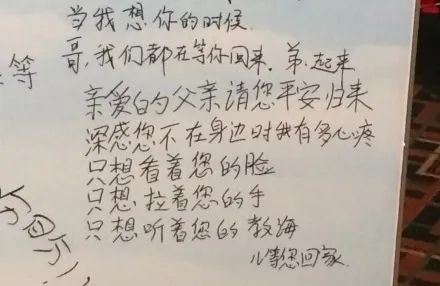 当我想你的时候
哥,我们都在等你回来。弟:起来
等
亲爱的父亲请您平安归来
深感您不在身边时我有多心疼
只想看着您的脸
只想拉着您的手
只想听着您的教海
儿等您回家.